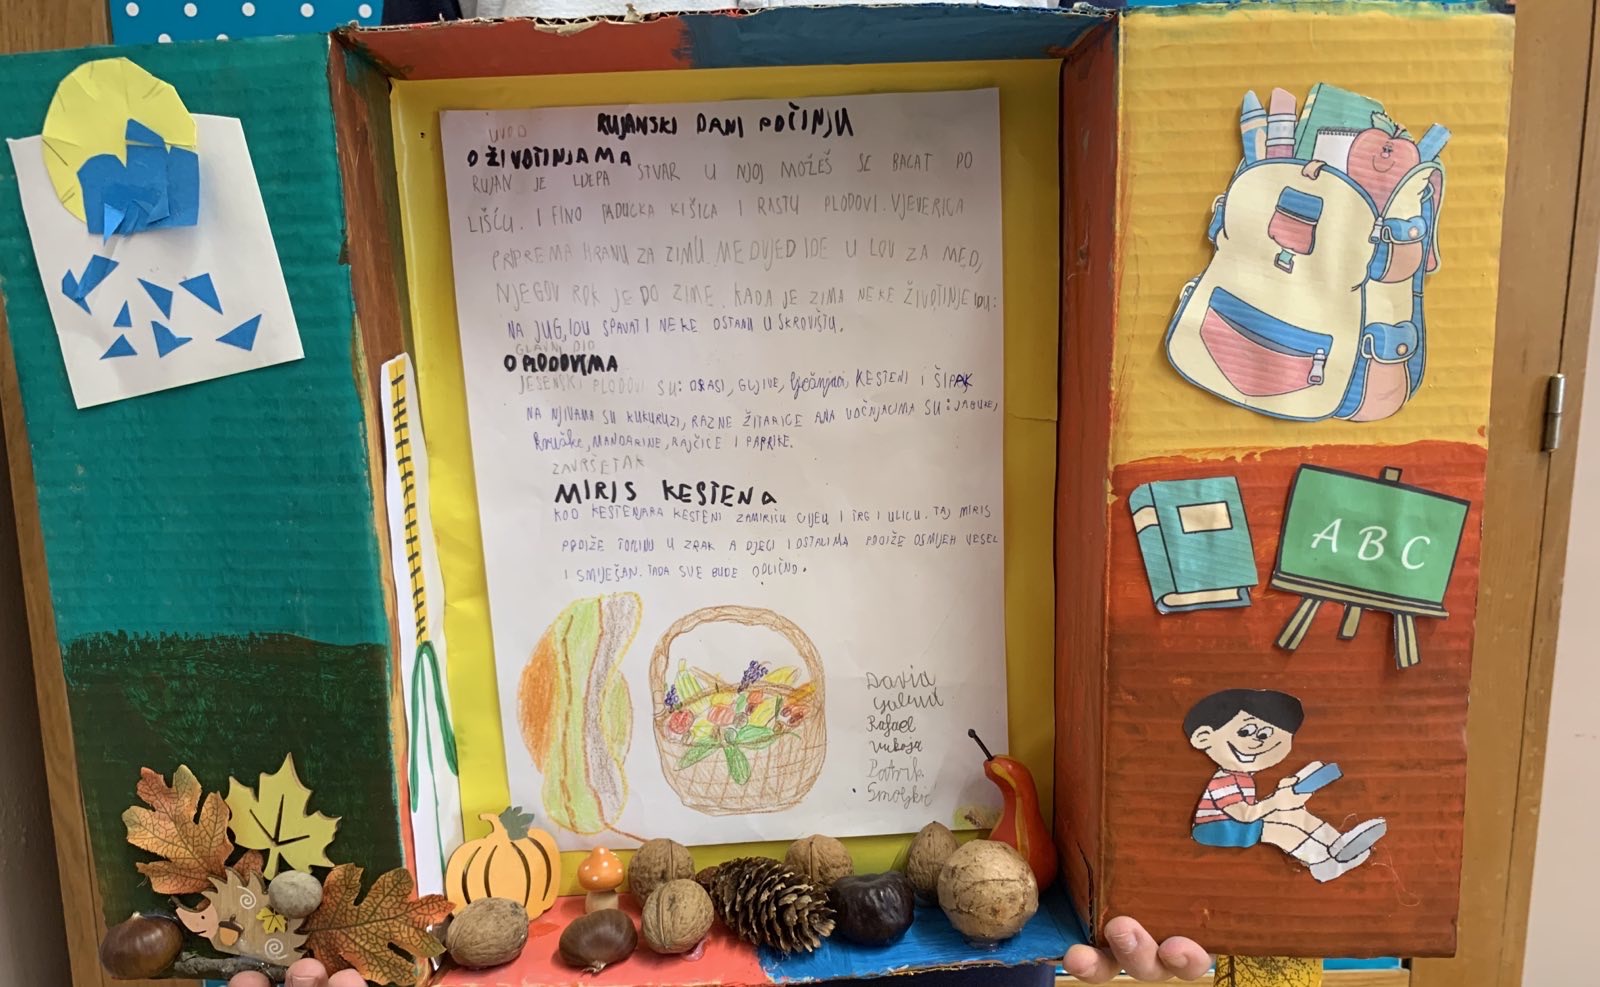 UVOD
RUJANSKI DANI POČINJU
O ŽIVOTINJAMA
RUJAN JE LIJEPA STVAR U NJOJ MOŽEŠ SE BACAT PO
LIŠĆU. I FINO PADUCKA KIŠICA I RASTU PLODOVI. VJEVERICA
PRIPREMA HRANU ZA ZIMU. MEDVJED IDE U LOV ZA MED,
NJEGOV ROK JE DO ZIME. KADA JE ZIMA NEKE ŽIVOTINJE IDU:
NA JUG, IDU SPAVATI NEKE OSTANU U SKROVIŠTU.
GLAVNI DIO
O PLODOVIMA
JESENSKI PLODOVI SU: ORASI, GLJIVE, lješnjaci, KESTENI I ŠIPAK
NA NJIVAMA SU KUKURUZI, RAZNE ŽITARICE A NA VOĆNJACIMA SU: JABUKE,
kruške, MANDARINE, RAJČICE I PAPRIKE.
ZAVRŠETAK
MIRIS KESTENA
KOD KESTENJARA KESTENI ZAMIRIŠU CIJELI I TRG I ULICU. TAJ MIRIS
PODIŽE TOPLINU U ZRAK A DJECI I OSTALIMA PODIŽE OSMIJEH VESEL
I SMIJEŠAN. TADA SVE BUDE ODLIČNO.
David
Rafael
Vukoja
Patrik
Smoljkić
A B C